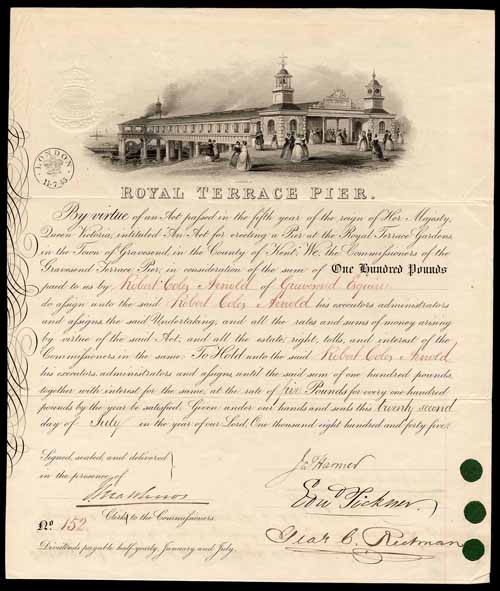 LONDON
11.7.45
ROYAL TERRACE PIER.
By virtue of an Act passed in the fifth year of the reign of Her Majesty,
Queen Victoria, intituled An Act for erecting a Pier at the Royal Terrace Gardens
in the Town of Gravesend, in the County of Kent; We, the Commissioners of the
Gravesend Terrace Pier, in consideration of the sum of One Hundred Pounds
paid to us by Robert Coles Arnold of Gravesend Esquire
do assign unto the said Robert Coles Arnold his executors administrators
and assigns, the said Undertaking, and all the rates and sums of money arising
by virtue of the said Act, and all the estate, right, tolls, and interest of the
Commissioners in the same: To Hold unto the said Robert Coles Arnold
his executors, administrators and assigns, until the said sum of one hundred pounds,
together with interest for the same, at the rate of five Pounds for every one hundred
pounds by the year be satisfied. Given under our hands and seals this twenty second
day of July in the year of our Lord, One thousand eight hundred and forty five
Signed, sealed, and delivered
in the presence of
Clerk to the Commissioners
No. 152
Dividends payable half yearly, January and July.
Jas Harmer
Edwd Tickner
Geo. C. Redman